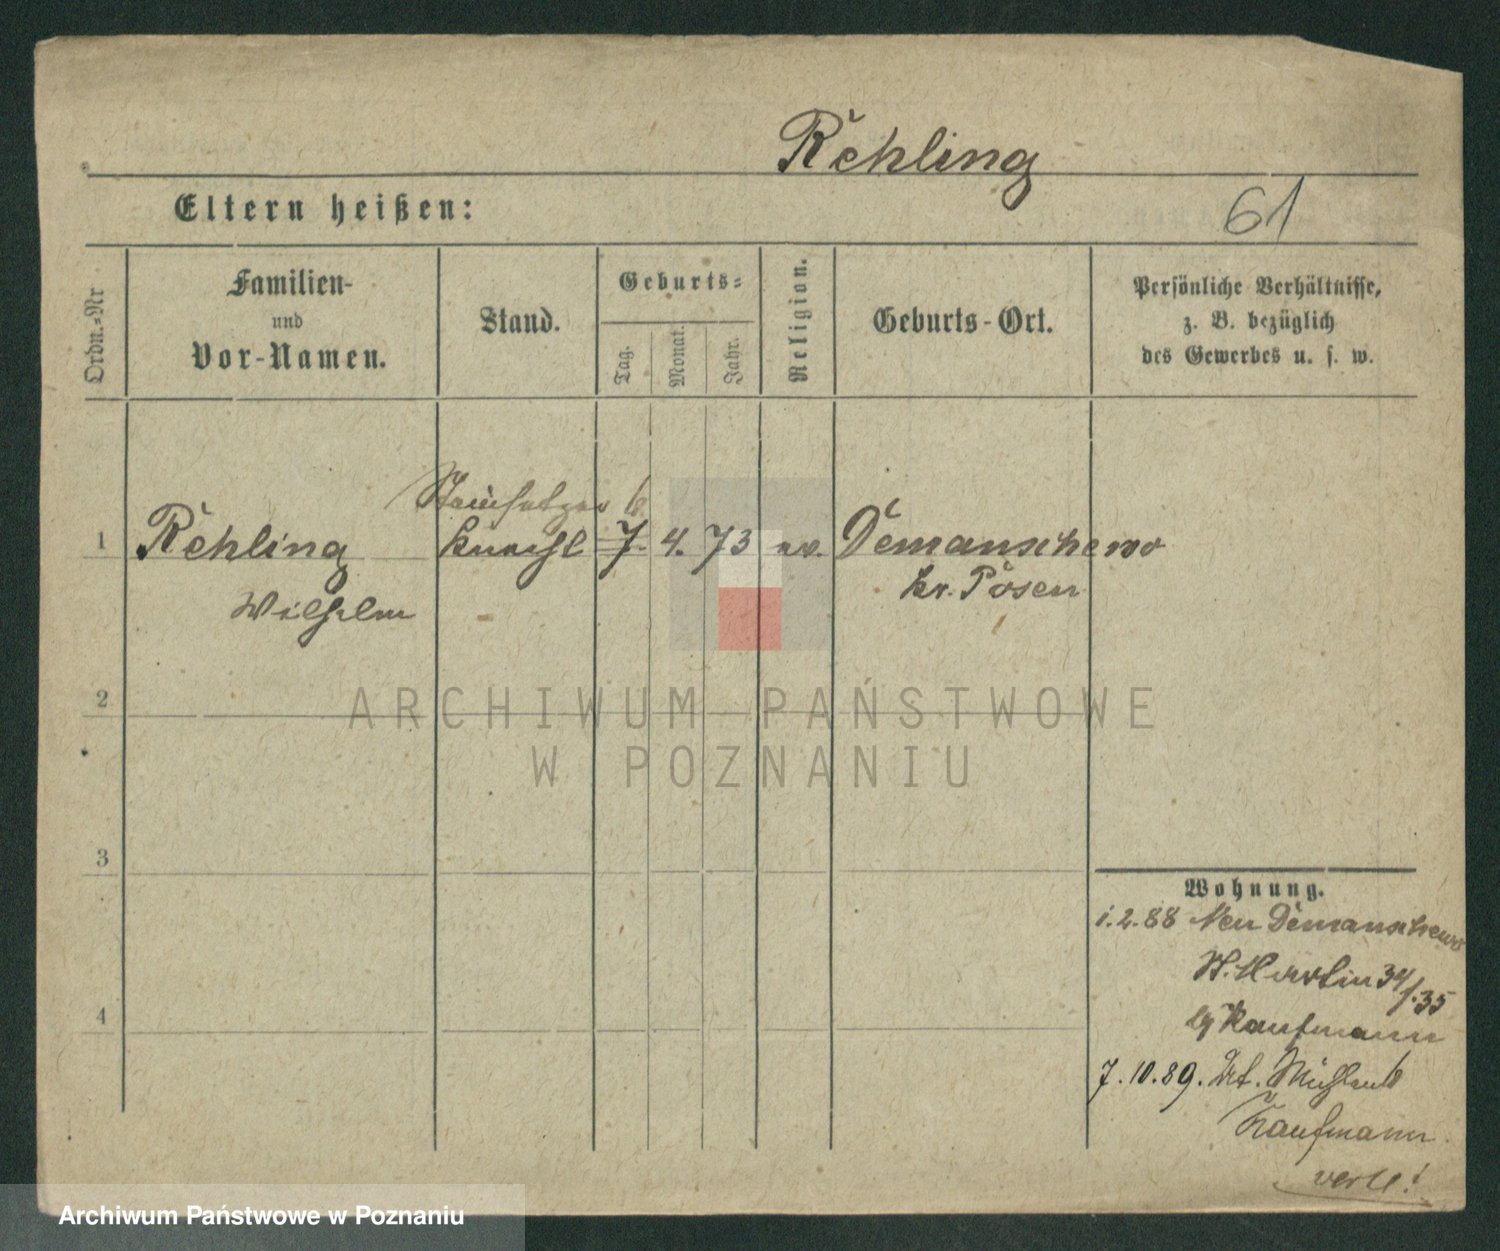 Rehling
Eltern heißen:
61
Ordn.-Nr
Familien-
und
Vor-Namen.
Stand.
Geburts-
Tag.
Monat.
Jahr.
Religion.
Geburts-Ort.
Persönliche Verhältnisse,
z. B. bezüglich
des Gewerbes u. s. w.
Steinsetzer
1 Rehling Knecht 7. 4. 73 ev. Demanschewo
Wilhelm
kr. Posen
2
3
4
Wohnung.
1.2.88 Neu Demanschewo
St. Martin 34/35
Kaufmann
7.10.89.
Kaufmann
verte!
ARCHIWUM PAŃSTWOWE
W POZNANIU
Archiwum Państwowe w Poznaniu